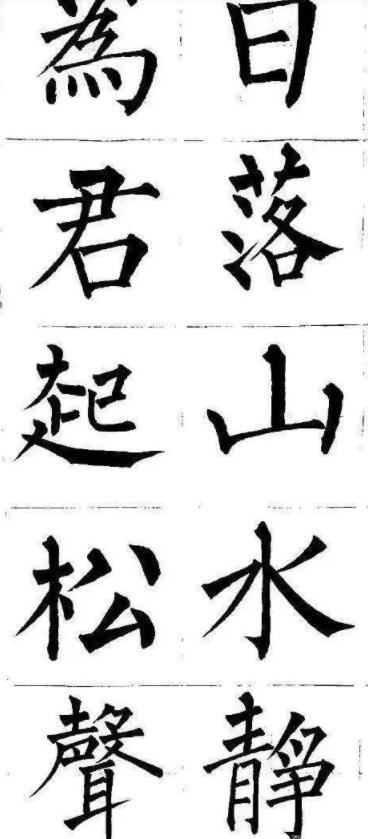 日落山水靜
為君起松聲